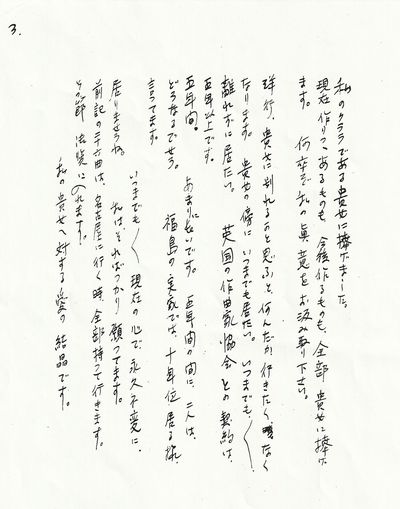 3.
私のクララである貴女に捧げました。
現在作りつゝあるものも、今後作るものも、全部貴女に捧げ
ます。何卒ぞ私の真意をお汲み取り下さい。
洋行、貴女に別れるかと思ふと、何んだか行きたくなく
なります。貴女の傍に、いつまでも居たい。いつまでも〱
離れずに居たい。英国の作曲家協会との契約は、
五年以上です。
五年間。あまりに長いです。五年間の間に、二人は、
どうなるでせう。福島の実家では、十年位居る様、
言ってます。
いつまでも〱現在の心で、永久不変に、
居りませうね。私は、そればっかり願ってます。
前記の三六曲は、名古屋に行く時、全部持って行きます。
その節御覧に入れます。
私の貴女へ対する愛の結晶です。